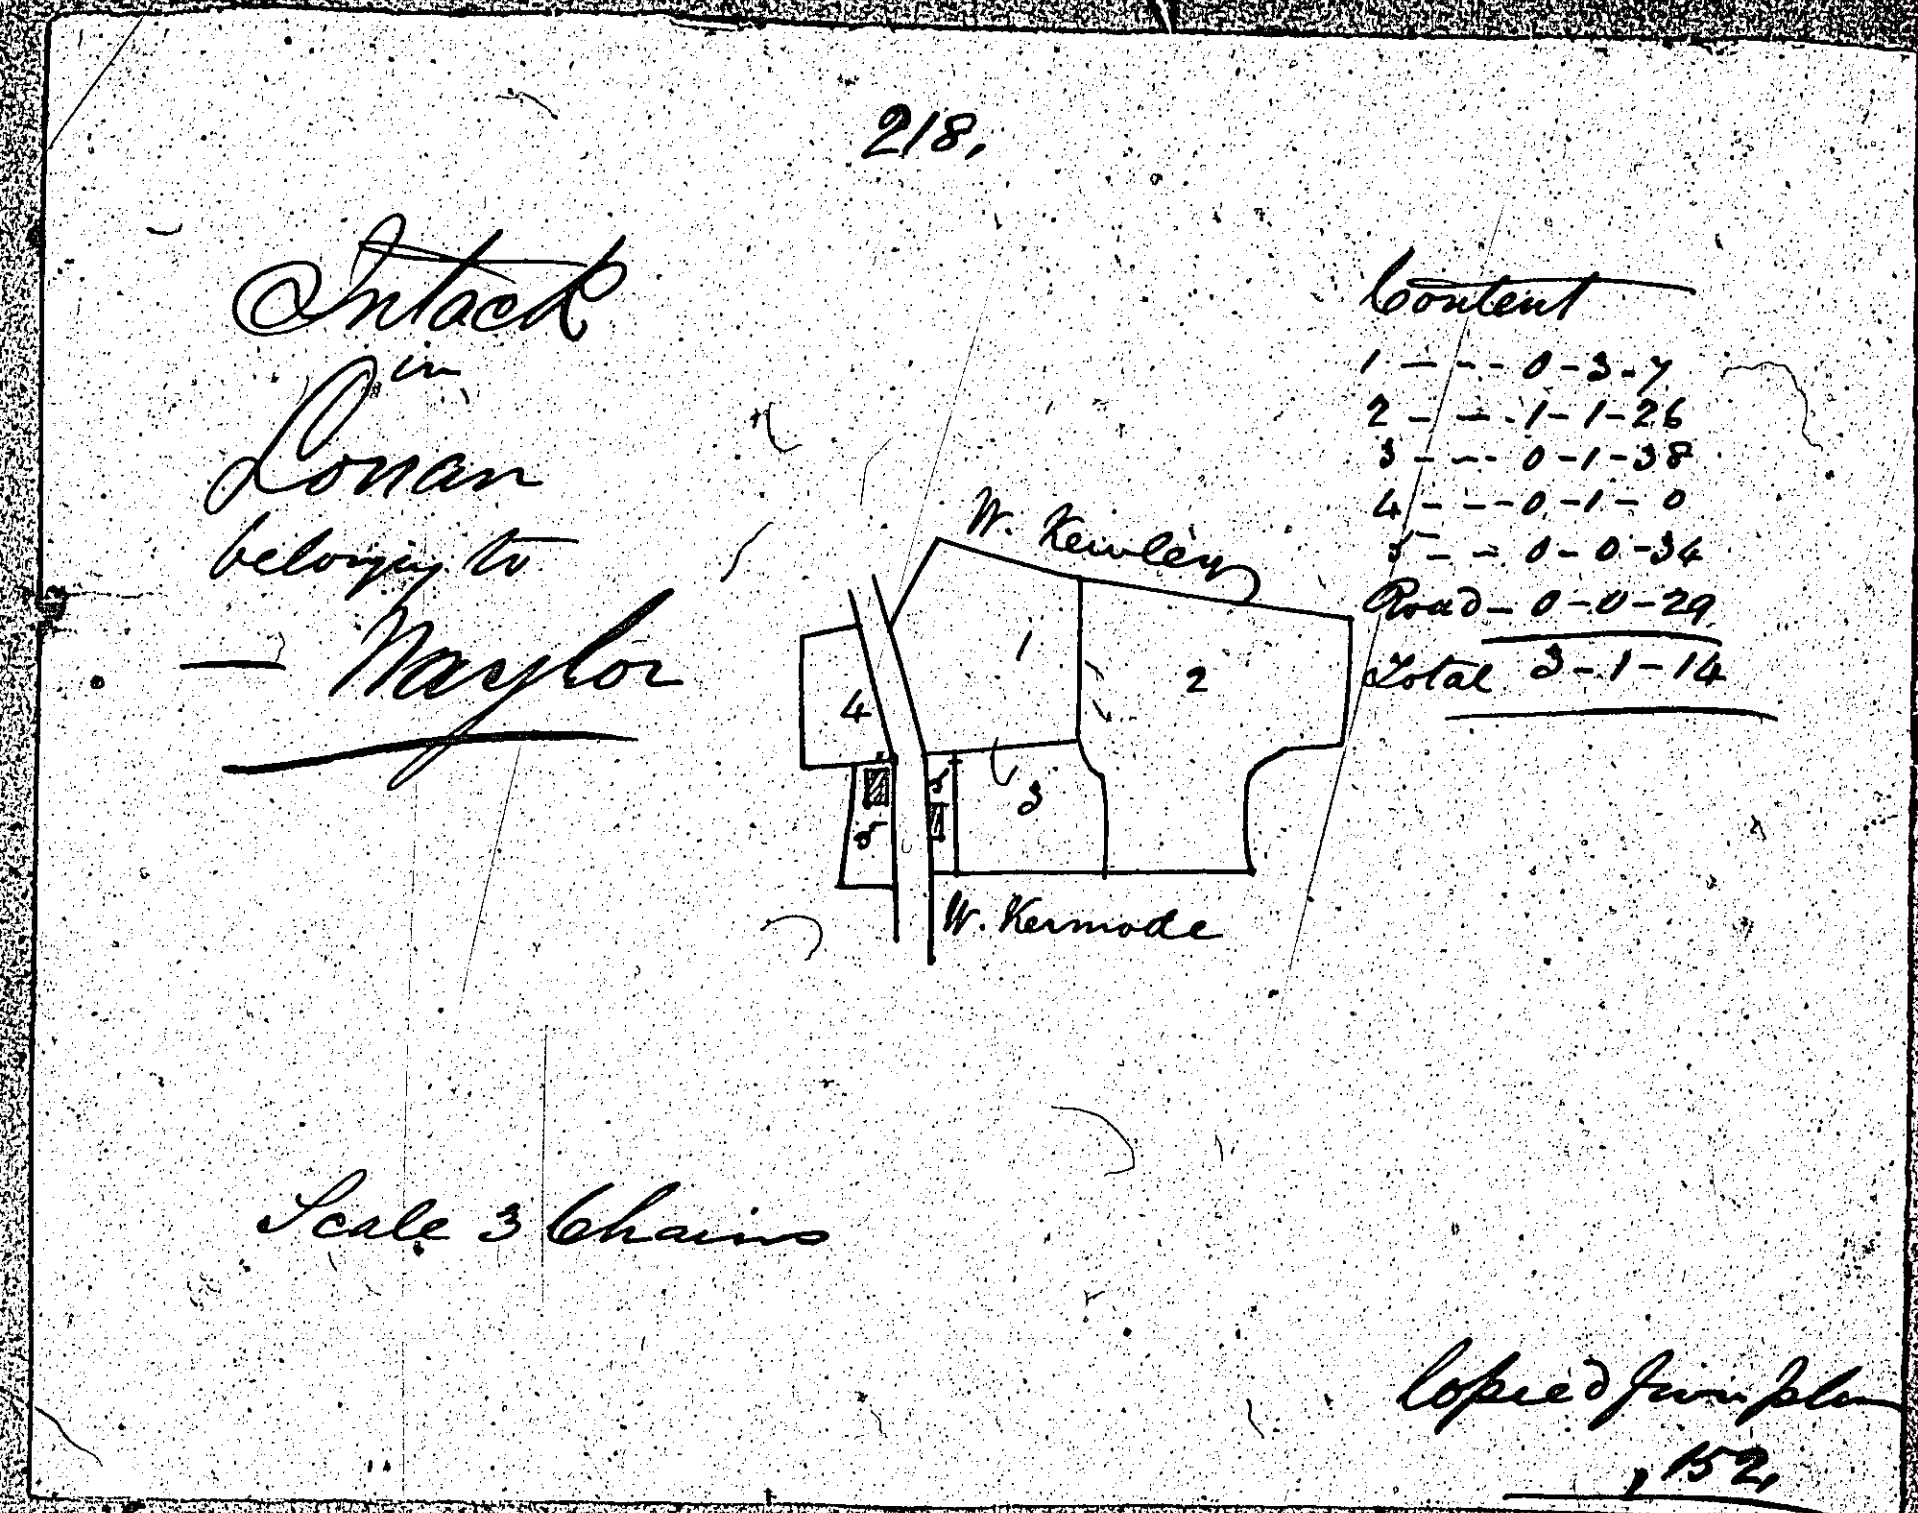 218,
Intack
in
Lonan
belonging to
— Naylor
Content
1 - - - 0-3-7
2 - - - 1-1-26
3 - - - 0-1-38
4 - - - 0-1-0
5 - - 0-0-34
Road - 0-0-29
Total 3-1-14
W. Kewley
1
2
4
5
3
5
W. Kermode
Scale 3 Chains
Copied from plan
, 152,